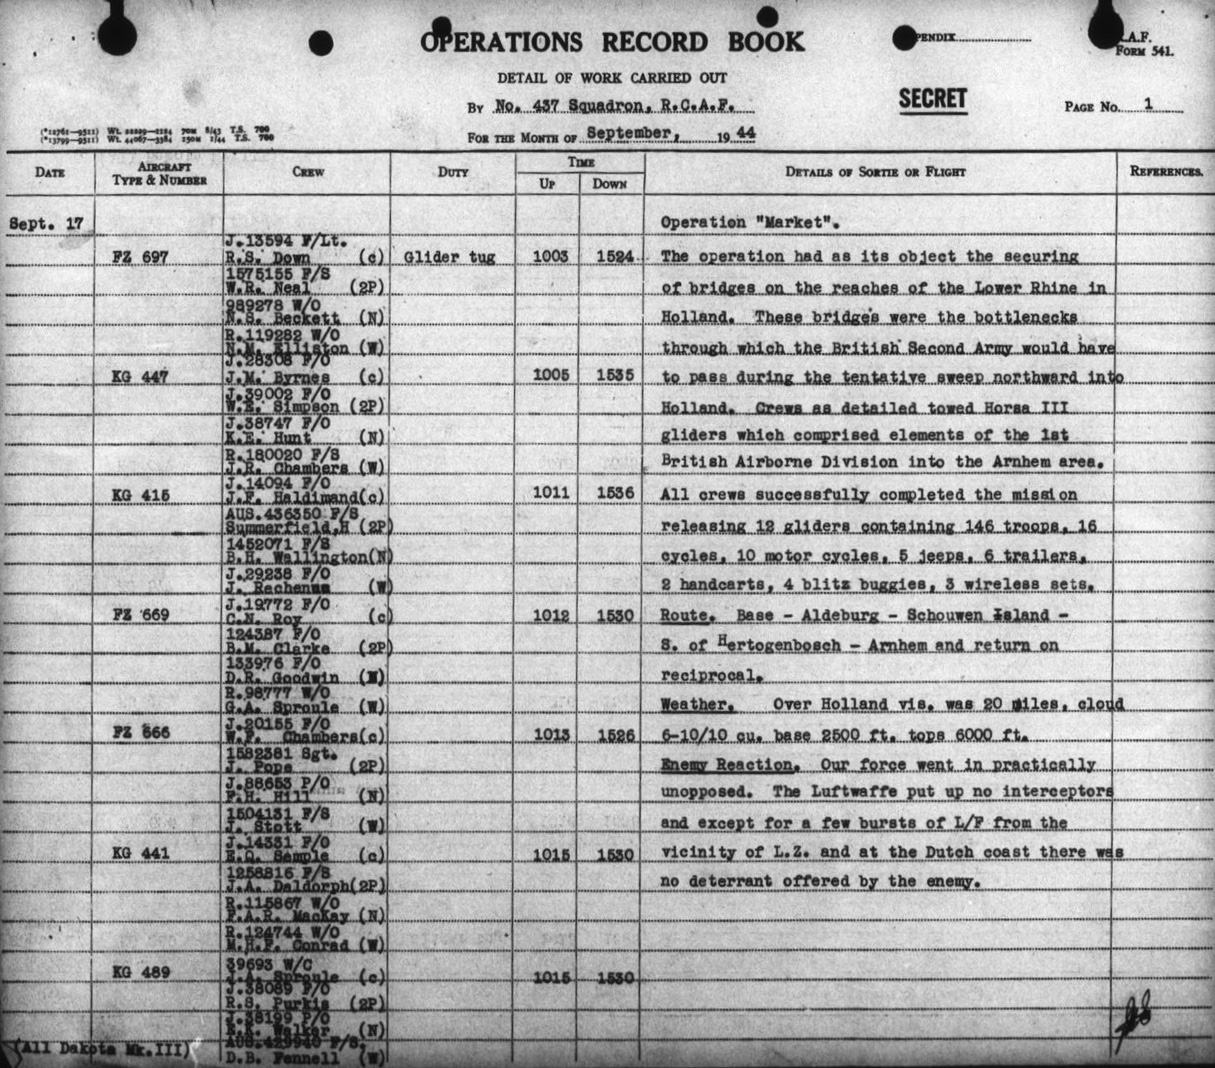 OPERATIONS RECORD BOOK
PENDIX
R.A.F.
FORM 541.
DETAIL OF WORK CARRIED OUT
SECRET
BY No. 437 Squadron, R.C.A.F.
PAGE No. 1
FOR THE MONTH OF September, 1944
(*12761—9511) Wt. 22299—2124 70M 8/43 T.S. 700
(*13799—9511) Wt. 44067—3384 250M 2/44 T.S. 700
DATE AIRCRAFT TYPE & NUMBER CREW DUTY TIME UP DOWN DETAILS OF SORTIE OR FLIGHT REFERENCES.
Sept. 17 Operation "Market".
J.13594 F/Lt.
FZ 697 R.S. Down (c) Glider tug 1003 1524 The operation had as its object the securing
1575155 F/S
W.R. Neal (2P) of bridges on the reaches of the Lower Rhine in
989278 W/O
N.S. Beckett (N) Holland. These bridges were the bottlenecks
R.119282 W/O
N.M. Elliston (W) through which the British Second Army would have
J.28308 F/O
KG 447 J.M. Byrnes (c) 1005 1535 to pass during the tentative sweep northward into
J.39002 F/O
W.E. Simpson (2P) Holland. Crews as detailed towed Horsa III
J.38747 F/O
K.E. Hunt (N) gliders which comprised elements of the 1st
R.180020 F/S
J.R. Chambers (W) British Airborne Division into the Arnhem area.
J.14094 F/O
KG 415 J.F. Haldimand(c) 1011 1536 All crews successfully completed the mission
AUS.436350 F/S
Summerfield,H (2P) releasing 12 gliders containing 146 troops, 16
1452071 F/S
B.H. Wallington(N) cycles, 10 motor cycles, 5 jeeps, 6 trailers,
J.29238 F/O
J. Rechenus (W) 2 handcarts, 4 blitz buggies, 3 wireless sets.
J.19772 F/O
FZ 669 C.N. Roy (c) 1012 1530 Route. Base - Aldeburg - Schouwen Island -
124387 F/O
B.M. Clarke (2P) S. of Hertogenbosch - Arnhem and return on
133976 F/O
D.R. Goodwin (N) reciprocal.
R.98777 W/O
G.A. Sproule (W) Weather. Over Holland vis. was 20 miles, cloud
J.20155 F/O
FZ 666 W.F. Chambers(c) 1013 1526 6-10/10 cu. base 2500 ft. tops 6000 ft.
1582381 Sgt.
J. Pope (2P) Enemy Reaction. Our force went in practically
J.88653 P/O
F.H. Hill (N) unopposed. The Luftwaffe put up no interceptors
1504131 F/S
J. Stott (W) and except for a few bursts of L/F from the
J.14331 F/O
KG 441 E.Q. Semple (c) 1015 1530 vicinity of L.Z. and at the Dutch coast there was
1258816 F/S
J.A. Daldorph(2P) no deterrant offered by the enemy.
R.115867 W/O
F.A.R. MacKay (N)
R.124744 W/O
M.H.F. Conrad (W)
39693 W/C
KG 489 J.A. Sproule (c) 1015 1530
J.38089 F/O
R.S. Purkis (2P)
J.38199 P/O
Walker (N)
AUS.429940 F/S.
(All Dakota Mk.III) D.B. Fennell (W)